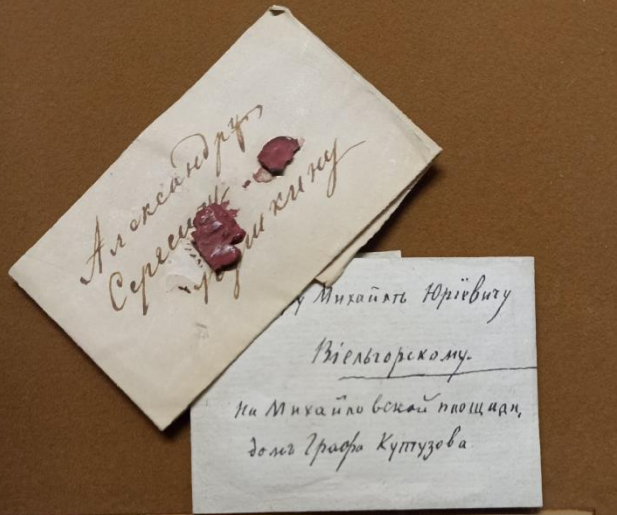 Александру
Сергеичу
Пушкину
Михайлѣ Юріевичу
Віельгорскому.
на Михайловской площади,
домъ Графа Кутузова